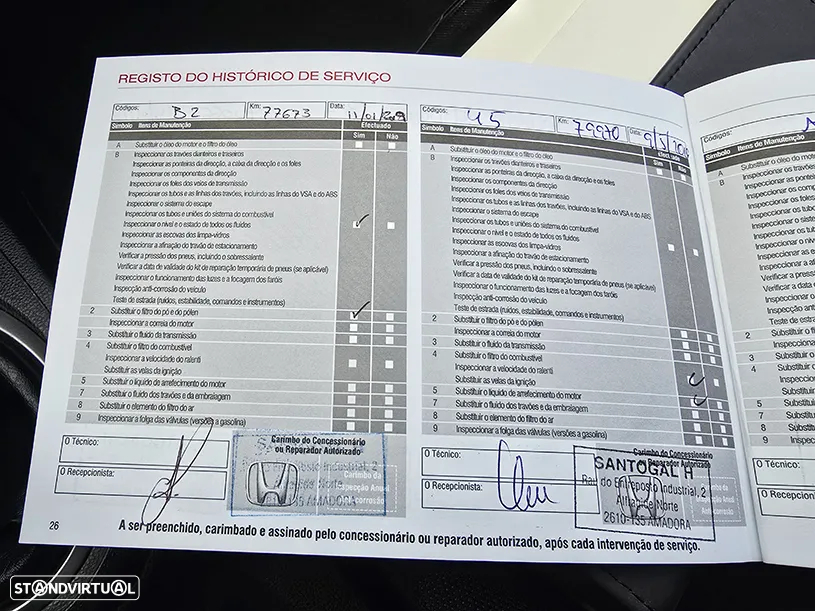 REGISTO DO HISTÓRICO DE SERVIÇO
Códigos: B2 Km: 77673 Data: 11/01/2019
Símbolo Itens de Manutenção Efectuado
Sim Não
A Substituir o óleo do motor e o filtro do óleo
B Inspeccionar os travões dianteiros e traseiros
Inspeccionar as ponteiras da direcção, a caixa da direcção e os foles
Inspeccionar os componentes da direcção
Inspeccionar os foles do veios de transmissão
Inspeccionar os tubos e as linhas dos travões, incluindo as linhas do VSA e do ABS
Inspeccionar o sistema do escape
Inspeccionar os tubos e uniões do sistema do combustível
Inspeccionar o nível e o estado de todos os fluidos
Inspeccionar as escovas dos limpa-vidros
Inspeccionar a afinação do travão de estacionamento
Verificar a pressão dos pneus, incluindo o sobresselente
Verificar a data de validade do kit de reparação temporária de pneus (se aplicável)
Inspeccionar o funcionamento das luzes e a focagem dos faróis
Inspecção anti-corrosão do veículo
Teste de estrada (ruídos, estabilidade, comandos e instrumentos)
2 Substituir o filtro do pó e do pólen
Inspeccionar a correia do motor
3 Substituir o fluido da transmissão
4 Substituir o filtro do combustível
Inspeccionar a velocidade do ralenti
Substituir as velas da ignição
5 Substituir o líquido de arrefecimento do motor
7 Substituir o fluido dos travões e da embraiagem
8 Substituir o elemento do filtro do ar
9 Inspeccionar a folga das válvulas (versões a gasolina)
O Técnico:
O Recepcionista:
Carimbo do Concessionário
ou Reparador Autorizado
Industrial, 2
Norte
AMADORA
Códigos: 45 Km: 79970 Data:
Símbolo Itens de Manutenção Efectuado
Sim Não
A Substituir o óleo do motor e o filtro do óleo
B Inspeccionar os travões dianteiros e traseiros
Inspeccionar as ponteiras da direcção, a caixa da direcção e os foles
Inspeccionar os componentes da direcção
Inspeccionar os foles dos veios de transmissão
Inspeccionar os tubos e as linhas dos travões, incluindo as linhas do VSA e do ABS
Inspeccionar o sistema do escape
Inspeccionar os tubos e uniões do sistema do combustível
Inspeccionar o nível e o estado de todos os fluidos
Inspeccionar as escovas dos limpa-vidros
Inspeccionar a afinação do travão de estacionamento
Verificar a pressão dos pneus, incluindo o sobresselente
Verificar a data de validade do kit de reparação temporária de pneus (se aplicável)
Inspeccionar o funcionamento das luzes e a focagem dos faróis
Inspecção anti-corrosão do veículo
Teste de estrada (ruídos, estabilidade, comandos e instrumentos)
2 Substituir o filtro do pó e do pólen
Inspeccionar a correia do motor
3 Substituir o fluido da transmissão
4 Substituir o filtro do combustível
Inspeccionar a velocidade do ralenti
Substituir as velas da ignição
5 Substituir o líquido de arrefecimento do motor
7 Substituir o fluido dos travões e da embraiagem
8 Substituir o elemento do filtro do ar
9 Inspeccionar a folga das válvulas (versões a gasolina)
O Técnico:
O Recepcionista:
Carimbo do Concessionário
SANTOGAL H
Rua do Entreposto Industrial, 2
Alfragide Norte
2610-135 AMADORA
26
A ser preenchido, carimbado e assinado pelo concessionário ou reparador autorizado, após cada intervenção de serviço.
Códigos:
Símbolo Itens de Manutenção
STANDVIRTUAL